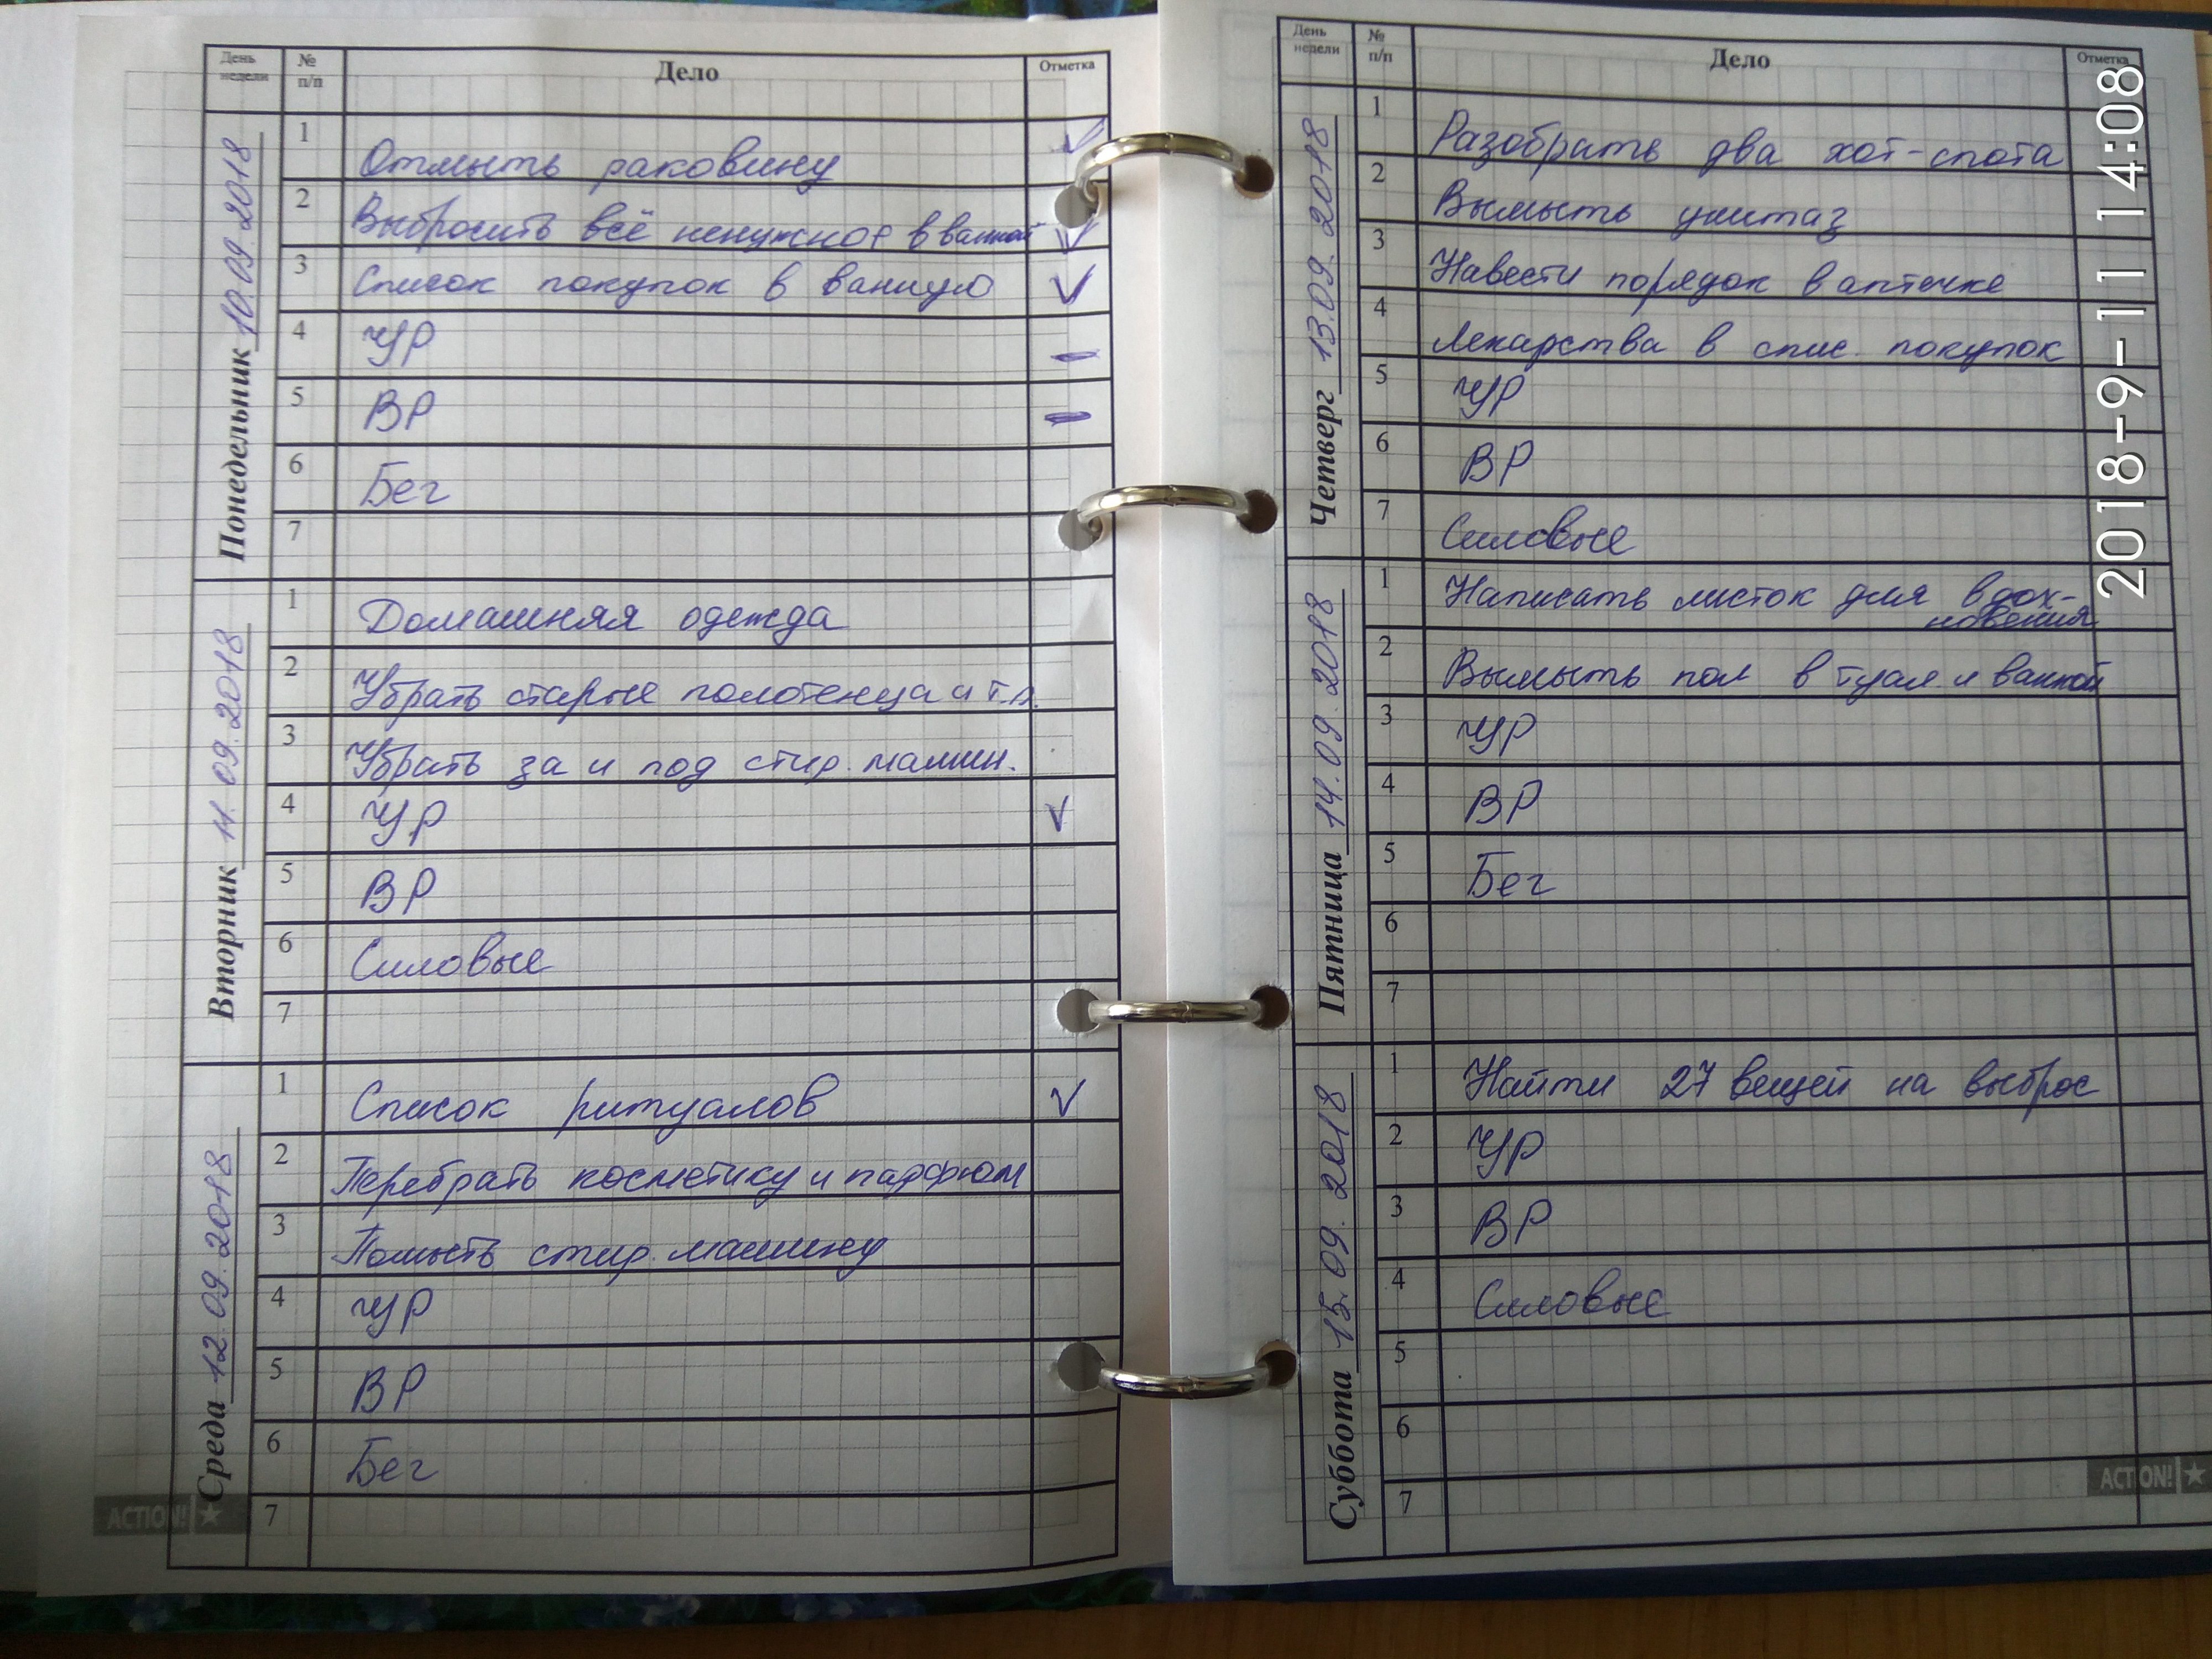 День недели № п/п Дело Отметка
Понедельник 10.09.2018
1 Отмыть раковину
2 Выбросить всё ненужное в ванной
3 Список покупок в ванную
4 УР
5 ВР
6 Бег
7
Вторник 11.09.2018
1 Домашняя одежда
2 Убрать старые полотенца и т.п.
3 Убрать за и под стир. машин.
4 УР
5 ВР
6 Силовые
7
Среда 12.09.2018
1 Список ритуалов
2 Перебрать косметику и парфюм
3 Помыть стир. машину
4 УР
5 ВР
6 Бег
7
ACTION!
День недели № п/п Дело Отметка
Четверг 13.09.2018
1 Разобрать два хот-спота
2 Вымыть унитаз
3 Навести порядок в аптечке
4 Лекарства в спис. покупок
5 УР
6 ВР
7 Силовые
Пятница 14.09.2018
1 Написать листок для вдох-
новения
2 Вымыть пол в туал. и ванной
3 УР
4 ВР
5 Бег
6
7
Суббота 15.09.2018
1 Найти 27 вещей на выброс
2 УР
3 ВР
4 Силовые
5
6
7
ACTION!
2018-9-11 14:08